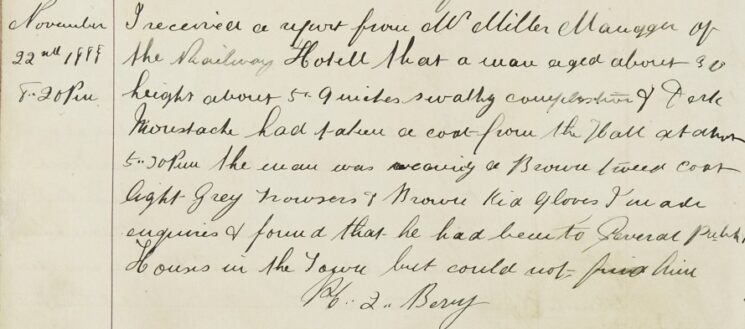 November
22nd 1888
8.20 Pm
I received a report from Mr Miller Manager of
the Railway Hotell that a man aged about 30
height about 5. 9 inches swathy complextion & Dark
Moustache had taken a coat from the Hall at abut
5.30 Pm the man was wearing a Brown tweed coat
light Grey Trowsers & Brown Kid Gloves I made
enquires & found that he had been to Several Public
Houses in the Town but could not find him
Berry